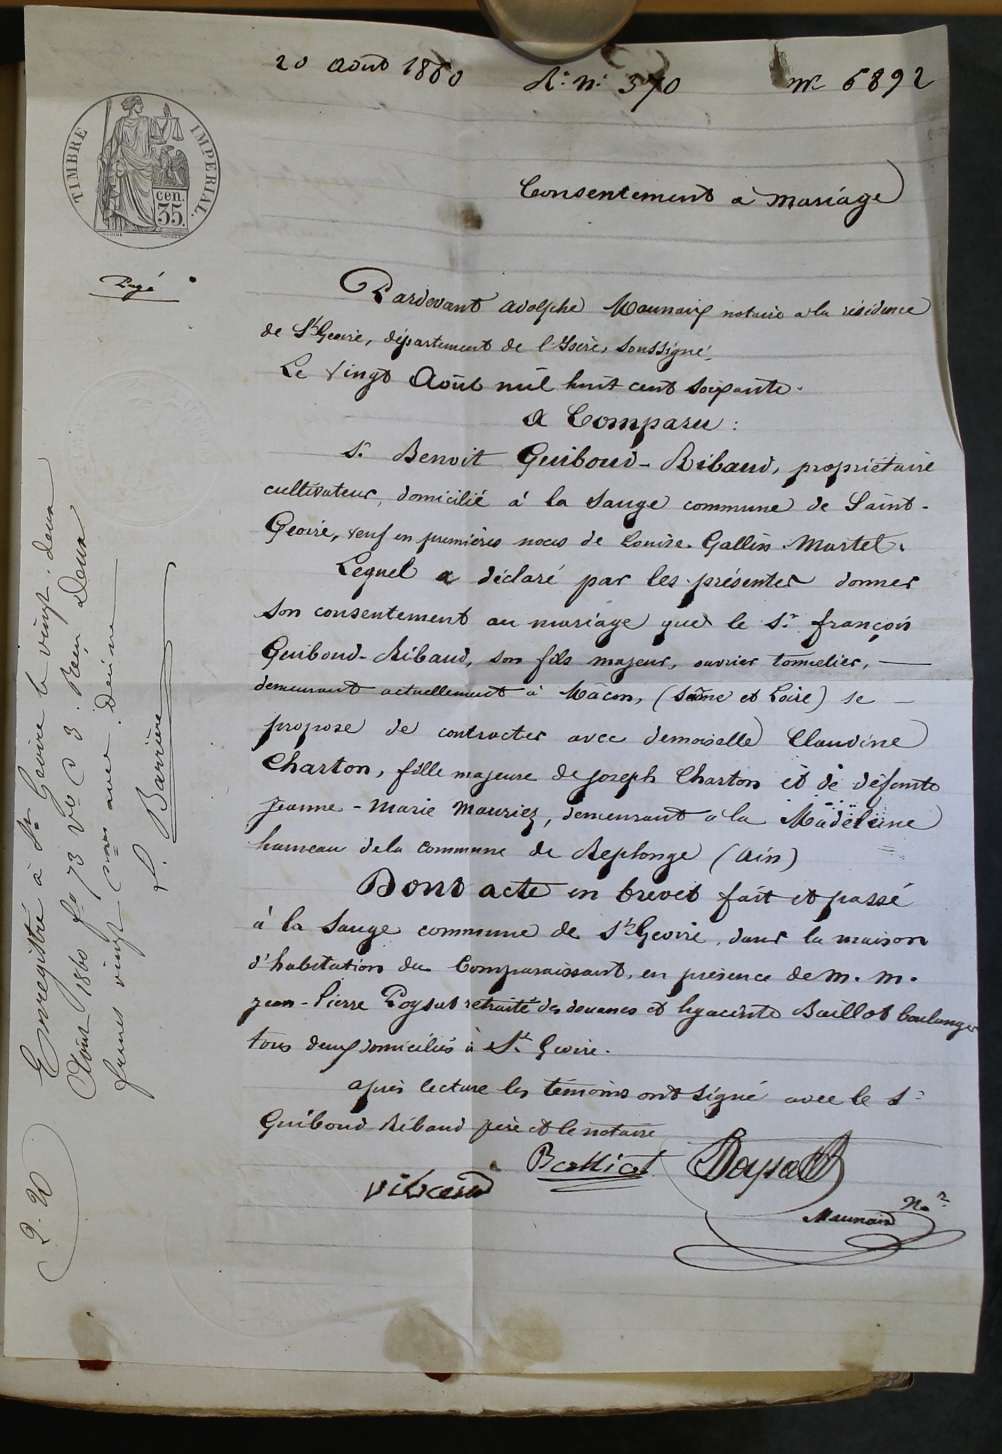 20 août 1860 R. n: 370 nº 6892
TIMBRE IMPÉRIAL.
cen. 35.
Consentement à mariage
Pardevant Adolphe Maunaix notaire à la résidence
de St Geoire, département de l'Isère, soussigné.
Le vingt Août mil huit cent soixante.
a Comparu :
Sr Benoit Guiboud-Ribaud, propriétaire
cultivateur, domicilié à la Sauge commune de Saint-
Geoire, veuf en premières noces de Louise Gallin-Martel.
Lequel a déclaré par les présentes donner
son consentement au mariage que le Sr françois
Guiboud-Ribaud, son fils majeur, ouvrier tonnelier,
demeurant actuellement à Mâcon, (Saône et Loire) se
propose de contracter avec demoiselle Claudine
Charton, fille majeure de Joseph Charton et de défunte
Jeanne-Marie Mauriez, demeurant à la Madeleine
hameau de la commune de Replonge (Ain)
Dont acte en brevet fait et passé
à la Sauge commune de St Geoire, dans la maison
d'habitation du Comparaissant, en présence de M. M.
jean-Pierre Poysat retraité des douanes et hyacinte Baillot boulanger
tous deux domiciliés à St Geoire.
après lecture les témoins ont signé avec le Sr
Guiboud Ribaud père et le notaire
Poysat
Maunaix Nre
Enregistré à St Geoire le vingt-deux
Août 1860 fo 73 Vo C 3. Reçu Deux
francs vingt cmes avec décime
P. Barrière
2. 20